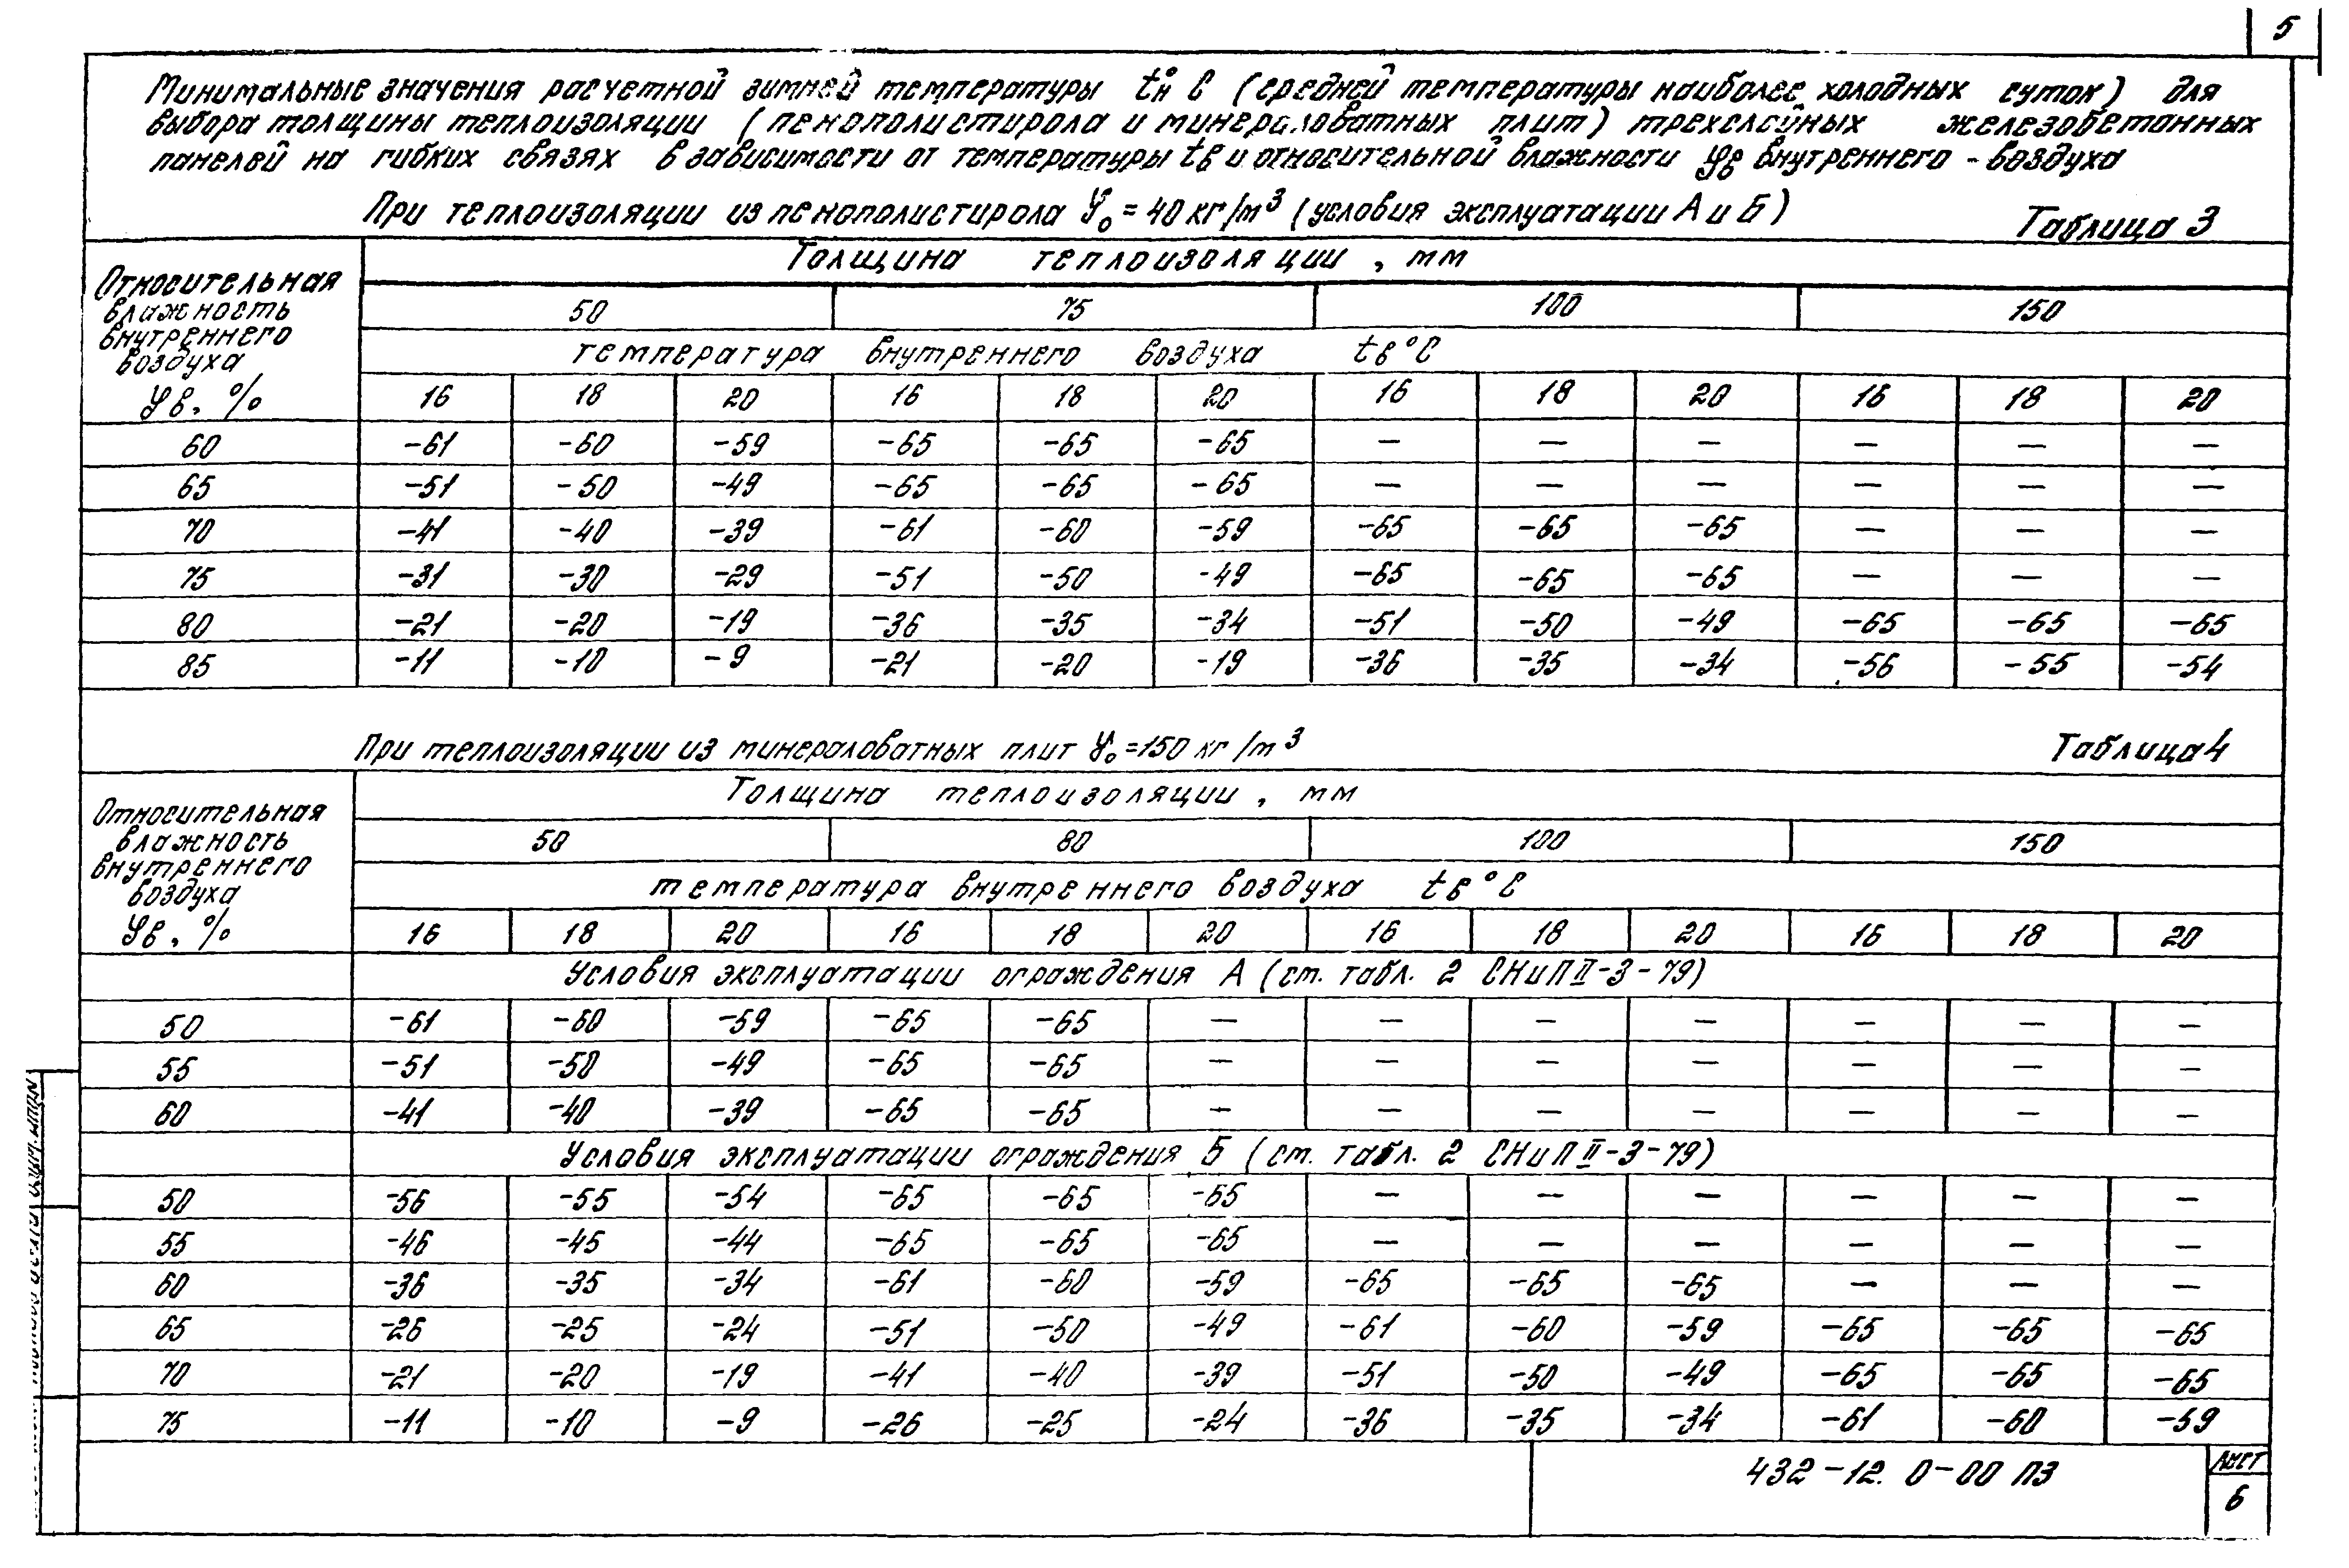 5
Минимальные значения расчетной зимней температуры tн° С (средней температуры наиболее холодных суток) для
выбора толщины теплоизоляции (пенополистирола и минераловатных плит) трехслойных железобетонных
панелей на гибких связях в зависимости от температуры tв и относительной влажности φв внутреннего - воздуха
При теплоизоляции из пенополистирола γ₀ = 40 кг/м³ (условия эксплуатации А и Б)
Таблица 3
Относительная влажность внутреннего воздуха φв, %
Толщина теплоизоляции, мм
50 75 100 150
температура внутреннего воздуха tв °С
16 18 20 16 18 20 16 18 20 16 18 20
60 -61 -60 -59 -65 -65 -65 — — — — — —
65 -51 -50 -49 -65 -65 -65 — — — — — —
70 -41 -40 -39 -61 -60 -59 -65 -65 -65 — — —
75 -31 -30 -29 -51 -50 -49 -65 -65 -65 — — —
80 -21 -20 -19 -36 -35 -34 -51 -50 -49 -65 -65 -65
85 -11 -10 -9 -21 -20 -19 -36 -35 -34 -56 -55 -54
При теплоизоляции из минераловатных плит γ₀ = 150 кг/м³
Таблица 4
Относительная влажность внутреннего воздуха φв, %
Толщина теплоизоляции, мм
50 80 100 150
температура внутреннего воздуха tв °С
16 18 20 16 18 20 16 18 20 16 18 20
Условия эксплуатации ограждения А (ст. табл. 2 СНиП II-3-79)
50 -61 -60 -59 -65 -65 — — — — — — —
55 -51 -50 -49 -65 -65 — — — — — — —
60 -41 -40 -39 -65 -65 — — — — — — —
Условия эксплуатации ограждения Б (ст. табл. 2 СНиП II-3-79)
50 -56 -55 -54 -65 -65 -65 — — — — — —
55 -46 -45 -44 -65 -65 -65 — — — — — —
60 -36 -35 -34 -61 -60 -59 -65 -65 -65 — — —
65 -26 -25 -24 -51 -50 -49 -61 -60 -59 -65 -65 -65
70 -21 -20 -19 -41 -40 -39 -51 -50 -49 -65 -65 -65
75 -11 -10 -9 -26 -25 -24 -36 -35 -34 -61 -60 -59
432-12. 0-00 ПЗ
Лист
6